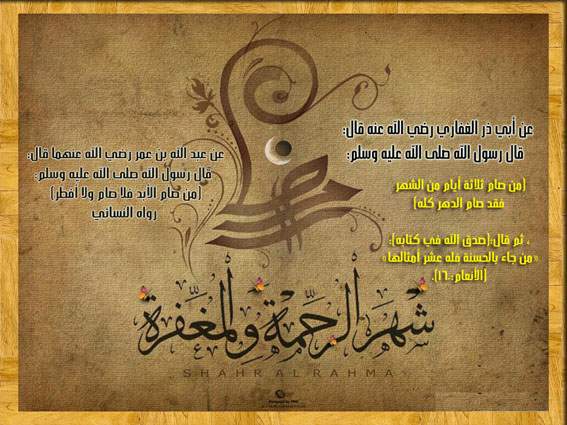 عن أبي ذر الغفاري رضي الله عنه قال:
قال رسول الله صلى الله عليه وسلم:
(من صام ثلاثة أيام من الشهر
فقد صام الدهر كله)
، ثم قال:(صدق الله في كتابه):
«من جاء بالحسنة فله عشر أمثالها»
(الأنعام:١٦٠).
عن عبد الله بن عمر رضي الله عنهما قال:
قال رسول الله صلى الله عليه وسلم:
(من صام الأبد فلا صام ولا أفطر)
رواه النسائي
رمضان
شهر الرحمة والمغفرة
SHAHR AL RAHMA